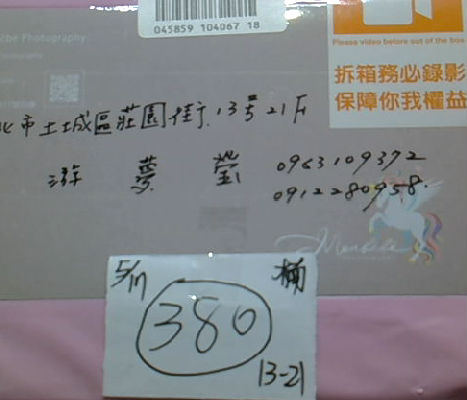 045859 104067 18
Please video before out of the box
拆箱務必錄影
保障你我權益
Photography
北市土城區莊園街13號21F
游夢瑩 0963109372
0912280958
5/17 桶
380
13-21